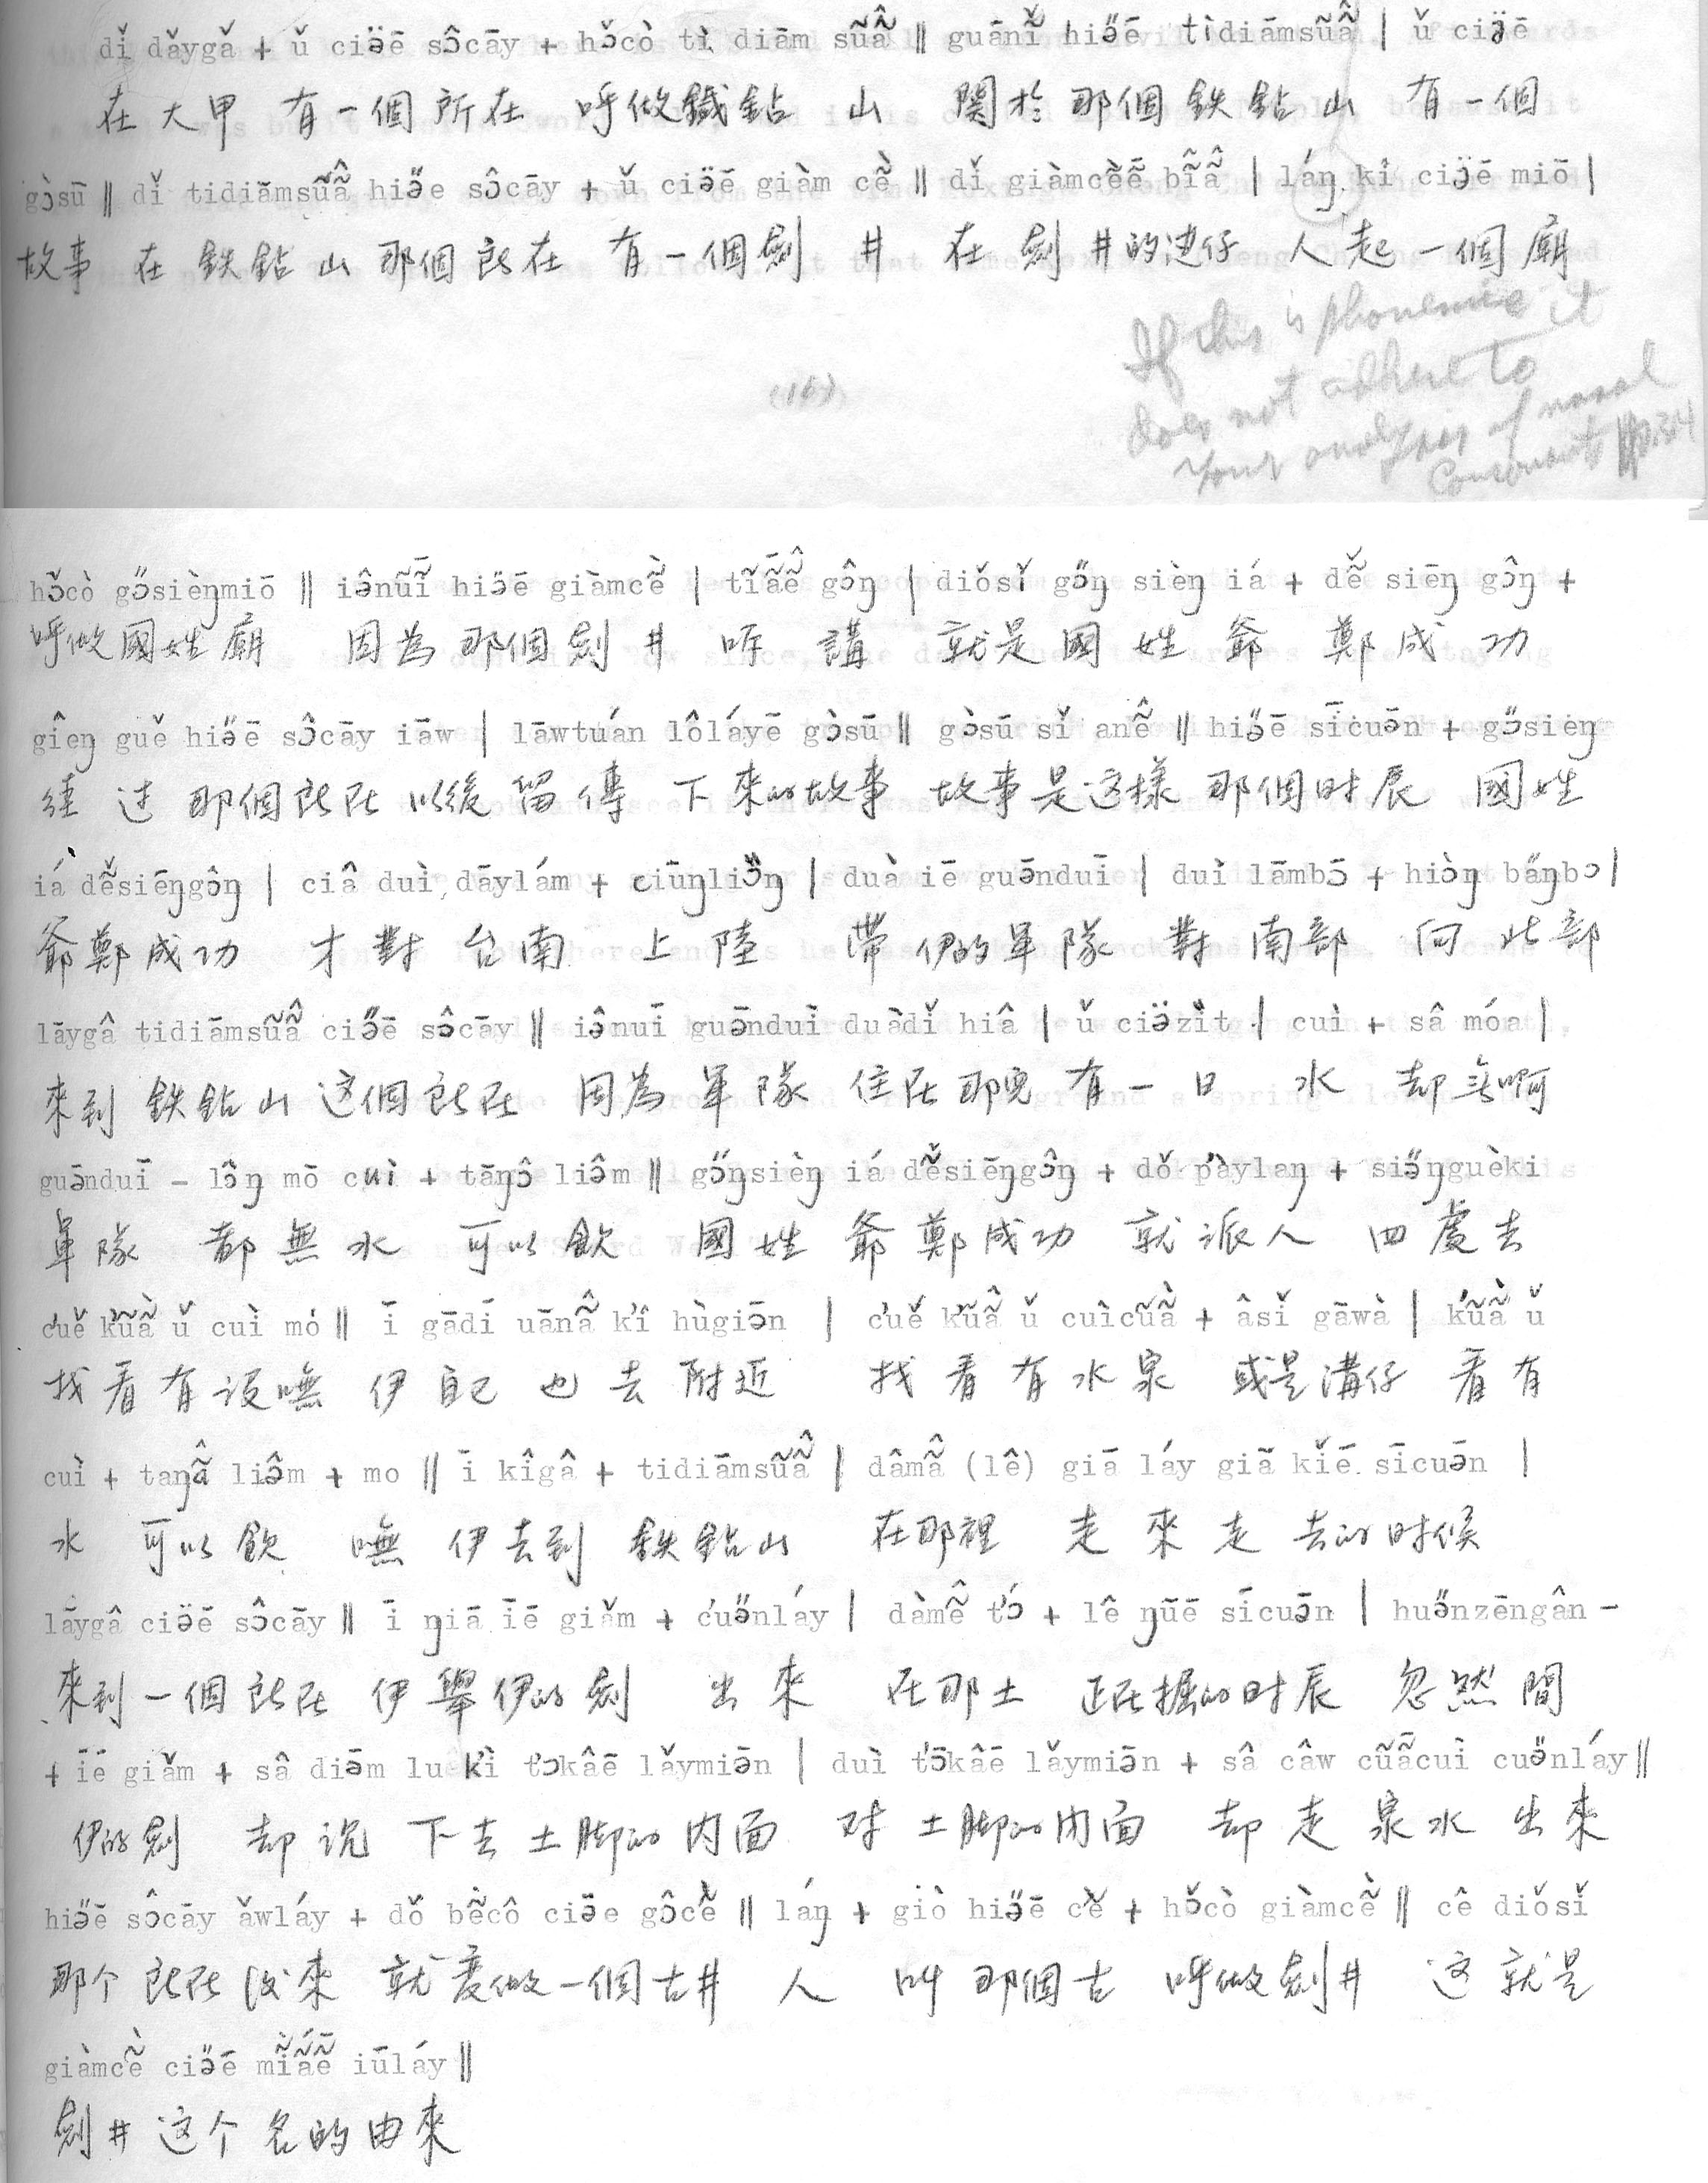 dǐ dǎygǎ + ǔ ciə̈ē sɔ̂cāy + hɔ̌cò tì diām sũ̌ã̂ ‖ guānĩ̌ hiə̋ē tìdiāmsũ̌ã̂ | ǔ ciə̈ē
在大甲 有一個所在 呼做鐵鉆 山 関於那個鉄鉆山 有一個
gɔ̀sū ‖ dǐ tidiāmsũ̌ã̂ hiə̋e sɔ̂cāy + ǔ ciə̈ē giàm cẽ̀ ‖ dǐ giàmcẽ̀ẽ̄ bĩ̄ã̂ | láŋ kî ciə̈ē miō |
故事 在 鉄鉆山 那個所在 有一個劍 井 在 劍井的边仔 人起一個廟
If this is phonemic it
does not adhere to
your analysis of nasal
consonants p.34
(16)
hɔ̌cò gɔ̋sièŋmiō ‖ iə̂nũĩ̄ hiə̋ē giàmcẽ̀ | tĩ̄ã́ẽ̂ gɔ̂ŋ | diǒsǐ gɔ̋ŋ sièŋ iá + dẽ̌ siēŋ gɔ̂ŋ +
呼做國姓廟 因為那個劍井 听 講 就是國 姓 爺 鄭成 功
gîeŋ guě hiə̋ē sɔ̂cāy iāw | lāwtuán lôláyē gɔ̀sū ‖ gɔ̀sū sǐ anẽ̂ ‖ hiə̋ē sīcuə̄n + gɔ̋sieŋ
經 过 那個所在 以後 留 傳 下 來的故事 故事是这樣 那個时辰 國姓
iá dẽ̌siēŋgɔ̂ŋ | ciâ duì dāylám + ciūŋliɔ̋ŋ | duà iē guə̄nduī | duì lāmbɔ̄ + hiɔ̀ŋ bäŋbɔ |
爺鄭成功 才對 台南 上 陸 帶 伊的軍 隊 對 南部 向 北部
lāygâ tidiāmsũ̌ã̂ ciə̋ē sɔ̂cāy ‖ iə̂nuī guə̄nduì duàdǐ hiâ | ǔ ciə̈zìt | cuì + sâ móa |
來到 鉄鉆山 这個所在 因為 軍 隊 住在那兒 有一日 水 却無啊
guə̄nduī – lɔ̂ŋ mō cuì + tāŋɔ̂ liə̂m ‖ gɔ̋ŋsièŋ iá dẽ̌siēŋgɔ̂ŋ + dǒ p'àylaŋ + siɔ̋ŋguèki
軍 隊 都 無 水 可以 飲 國 姓 爺 鄭成功 就 派人 四處去
c'uě k'ũã̀ ǔ cuì mó ‖ ī gādí uānã̂ k'î hùgiə̄n | c'uě k'ũã̂ ǔ cuìcũã̀ + âsǐ gāwà | k'ũã̀ ǔ
找 看 有 沒嘸 伊 自己 也 去 附近 找 看 有 水 泉 或是溝仔 看 有
cuì + taŋã̂ liə̂m + mo ‖ ī kîgâ + tidiāmsũ̌ã̂ | dâmã̂ (lê) giā láy giā kǐē sīcuə̄n |
水 可以 飲 嘸 伊去到 鉄鉆山 在那裡 走 來 走 去的时候
lāygâ ciə̈ē sɔ̂cāy ‖ ī ŋiā īē giǎm + c'uə̋nláy | dàmẽ̂ t'ɔ́ + lê ŋūē sícuə̄n | huə̋nzēngân –
來到 一個 所在 伊 舉 伊的劍 出 來 在那土 正在掘的时辰 忽然 間
+ īē giǎm + sâ diə̄m lu k'ì t'ɔkâē lǎymiə̄n | duì t'ɔ̄kâē lǎymiə̄n + sâ câw cũãcuì cuə̋nláy ‖
伊的劍 却 说 下去土脚的內面 对 土脚的内面 却走 泉水 出來
hiə̋ē sɔ̂cāy ǎwláy + dǒ bẽ̀cô ciə̄e gɔ̂cẽ̀ ‖ láŋ + giò hiə̋ē cẽ̀ + hɔ̌cò giàmcẽ̀ ‖ cê diǒsǐ
那个 所在 后來 就变做一個古井 人 叫 那個古 呼做劍井 这就是
giàmcẽ̀ ciə̋ē mĩ̀ã́ẽ̄ iūláy ‖
劍井这个名的由來